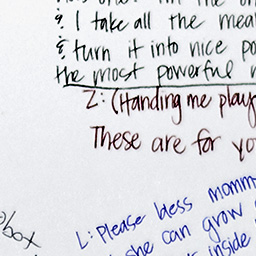 & I take all the mea
& turn it into nice po
the most powerful
Z: (Handing me play
These are for yo
L: Please bless momm
she can grow
inside
box